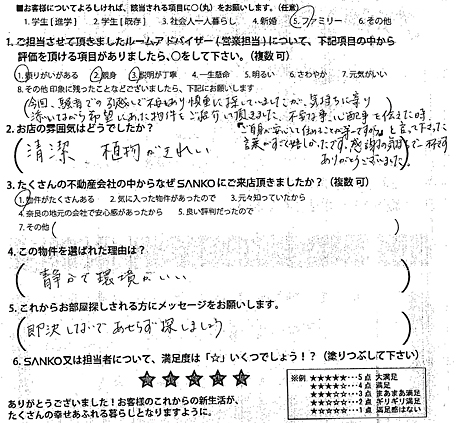 ■お客様についてよろしければ、該当される項目に〇(丸)をお願いします。(任意)
1. 学生 [ 進学 ] 2. 学生 [ 既存 ] 3. 社会人一人暮らし 4. 新婚 5. ファミリー 6. その他
1. ご担当させて頂きましたルームアドバイザー(営業担当)について、下記項目の中から
評価を頂ける項目がありましたら、〇をして下さい。(複数可)
1. 頼りがいがある 2. 親身 3. 説明が丁寧 4. 一生懸命 5. 明るい 6. さわやか 7. 元気がいい
8. その他印象に残ったことなどございましたら、下記にお願いします
今回、
引越しで不安もあり慎重に探していましたが、気持ちに寄り
添いながら希望にあた物件をご紹介頂きました。不安な事、心配事を伝えた時
と言って下さった
言葉がすごく嬉しかったです。感謝の気持ちで一杯です
ありがとうございました。
2. お店の雰囲気はどうでしたか?
清潔、植物がきれい
3. たくさんの不動産会社の中からなぜSANKOにご来店頂きましたか?(複数可)
1. 物件がたくさんある 2. 気に入った物件があったので 3. 元々知っていたから
4. 奈良の地元の会社で安心感があったから 5. 良い評判だったので
7. その他 ( )
4. この物件を選ばれた理由は?
静かで環境がいい
5. これからお部屋探しされる方にメッセージをお願いします。
即決しないであせらず探しましょう
6. SANKO又は担当者について、満足度は「☆」いくつでしょう!?(塗りつぶして下さい)
★★★★★
※例 ★★★★★・・・5点 大満足
★★★★☆・・・4点 満足
★★★☆☆・・・3点 まあまあ満足
★★☆☆☆・・・2点 ギリギリ満足
★☆☆☆☆・・・1点 満足感はない
ありがとうございました!お客様のこれからの新生活が、
たくさんの幸せあふれる暮らしとなりますように。